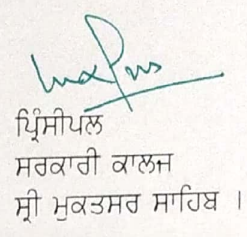 ਪ੍ਰਿੰਸੀਪਲ
ਸਰਕਾਰੀ ਕਾਲਜ
ਸ੍ਰੀ ਮੁਕਤਸਰ ਸਾਹਿਬ ।